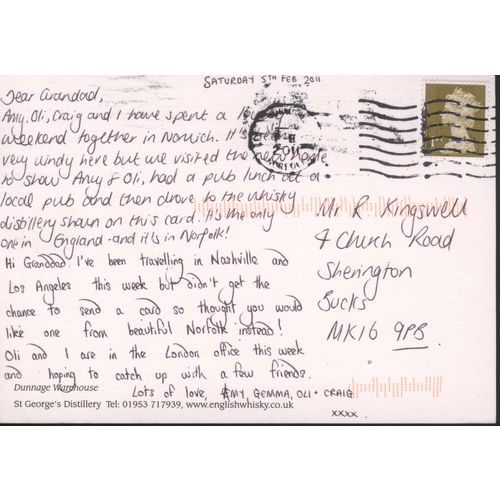 SATURDAY 5TH FEB 2011
Dear Grandad,
Amy, Oli, Craig and I have spent a
weekend together in Norwich. It's been
very windy here but we visited the new house
to show Amy & Oli, had a pub lunch at a
local pub and then drove to the whisky
distillery shown on this card. It's the only
one in England - and it is in Norfolk!
Hi Granddad. I've been travelling in Nashville and
Los Angeles this week but didn't get the
chance to send a card so thought you would
like one from beautiful Norfolk instead!
Oli and I are in the London office this week
and hoping to catch up with a few friends.
Lots of love, AMY, GEMMA, OLI + CRAIG
xxxx.
Mr R Kingswell
7 Church Road
Sherington
Bucks
MK16 9PB.
2011
Dunnage Warehouse
St George's Distillery Tel: 01953 717939, www.englishwhisky.co.uk